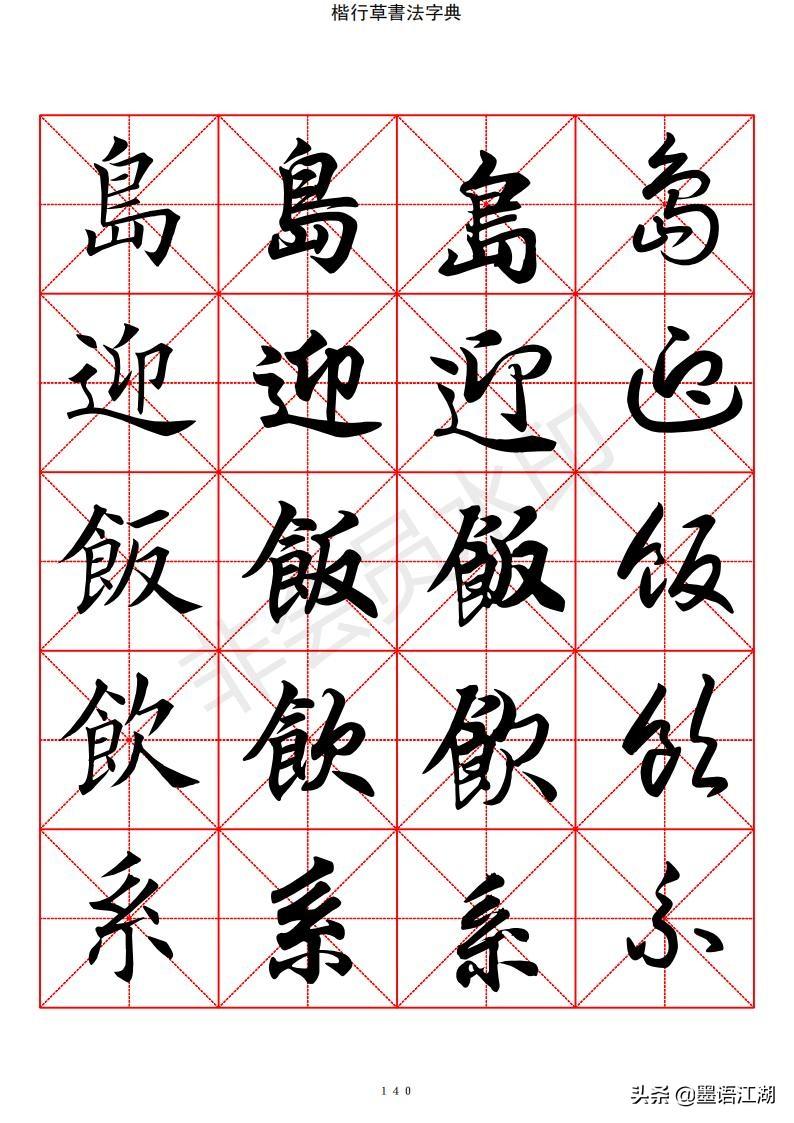 楷行草書法字典
島 島 島 島
迎 迎 迎 迎
飯 飯 飯 飯
飲 飲 飲 飲
系 系 系 系
非会员水印
140
头条 @墨语江湖